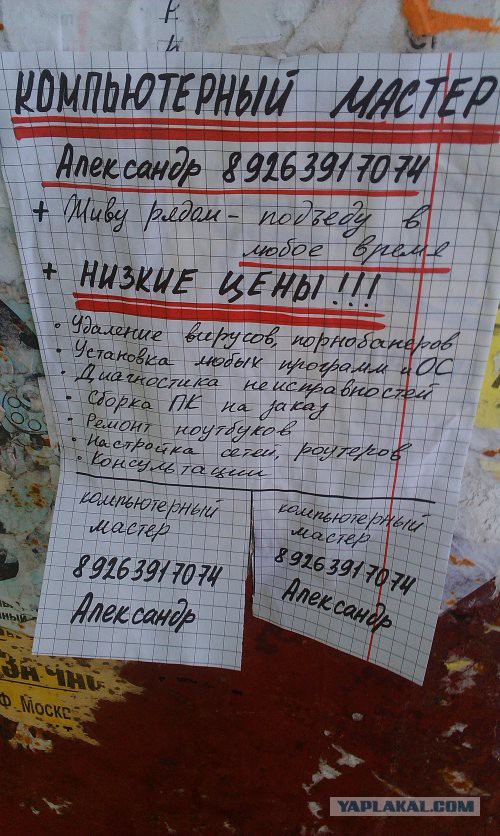 КОМПЬЮТЕРНЫЙ МАСТЕР
Александр 89263917074
+ Живу рядом - подъеду в
любое время
+ НИЗКИЕ ЦЕНЫ!!!
• Удаление вирусов, порнобанеров
• Установка любых программ и ОС
• Диагностика неисправностей
• Сборка ПК на заказ
• Ремонт ноутбуков
• Настройка сетей, роутеров
• Консультации
компьютерный
мастер
89263917074
Александр
компьютерный
мастер
89263917074
Александр
Ф Моске
YAPLAKAL.COM